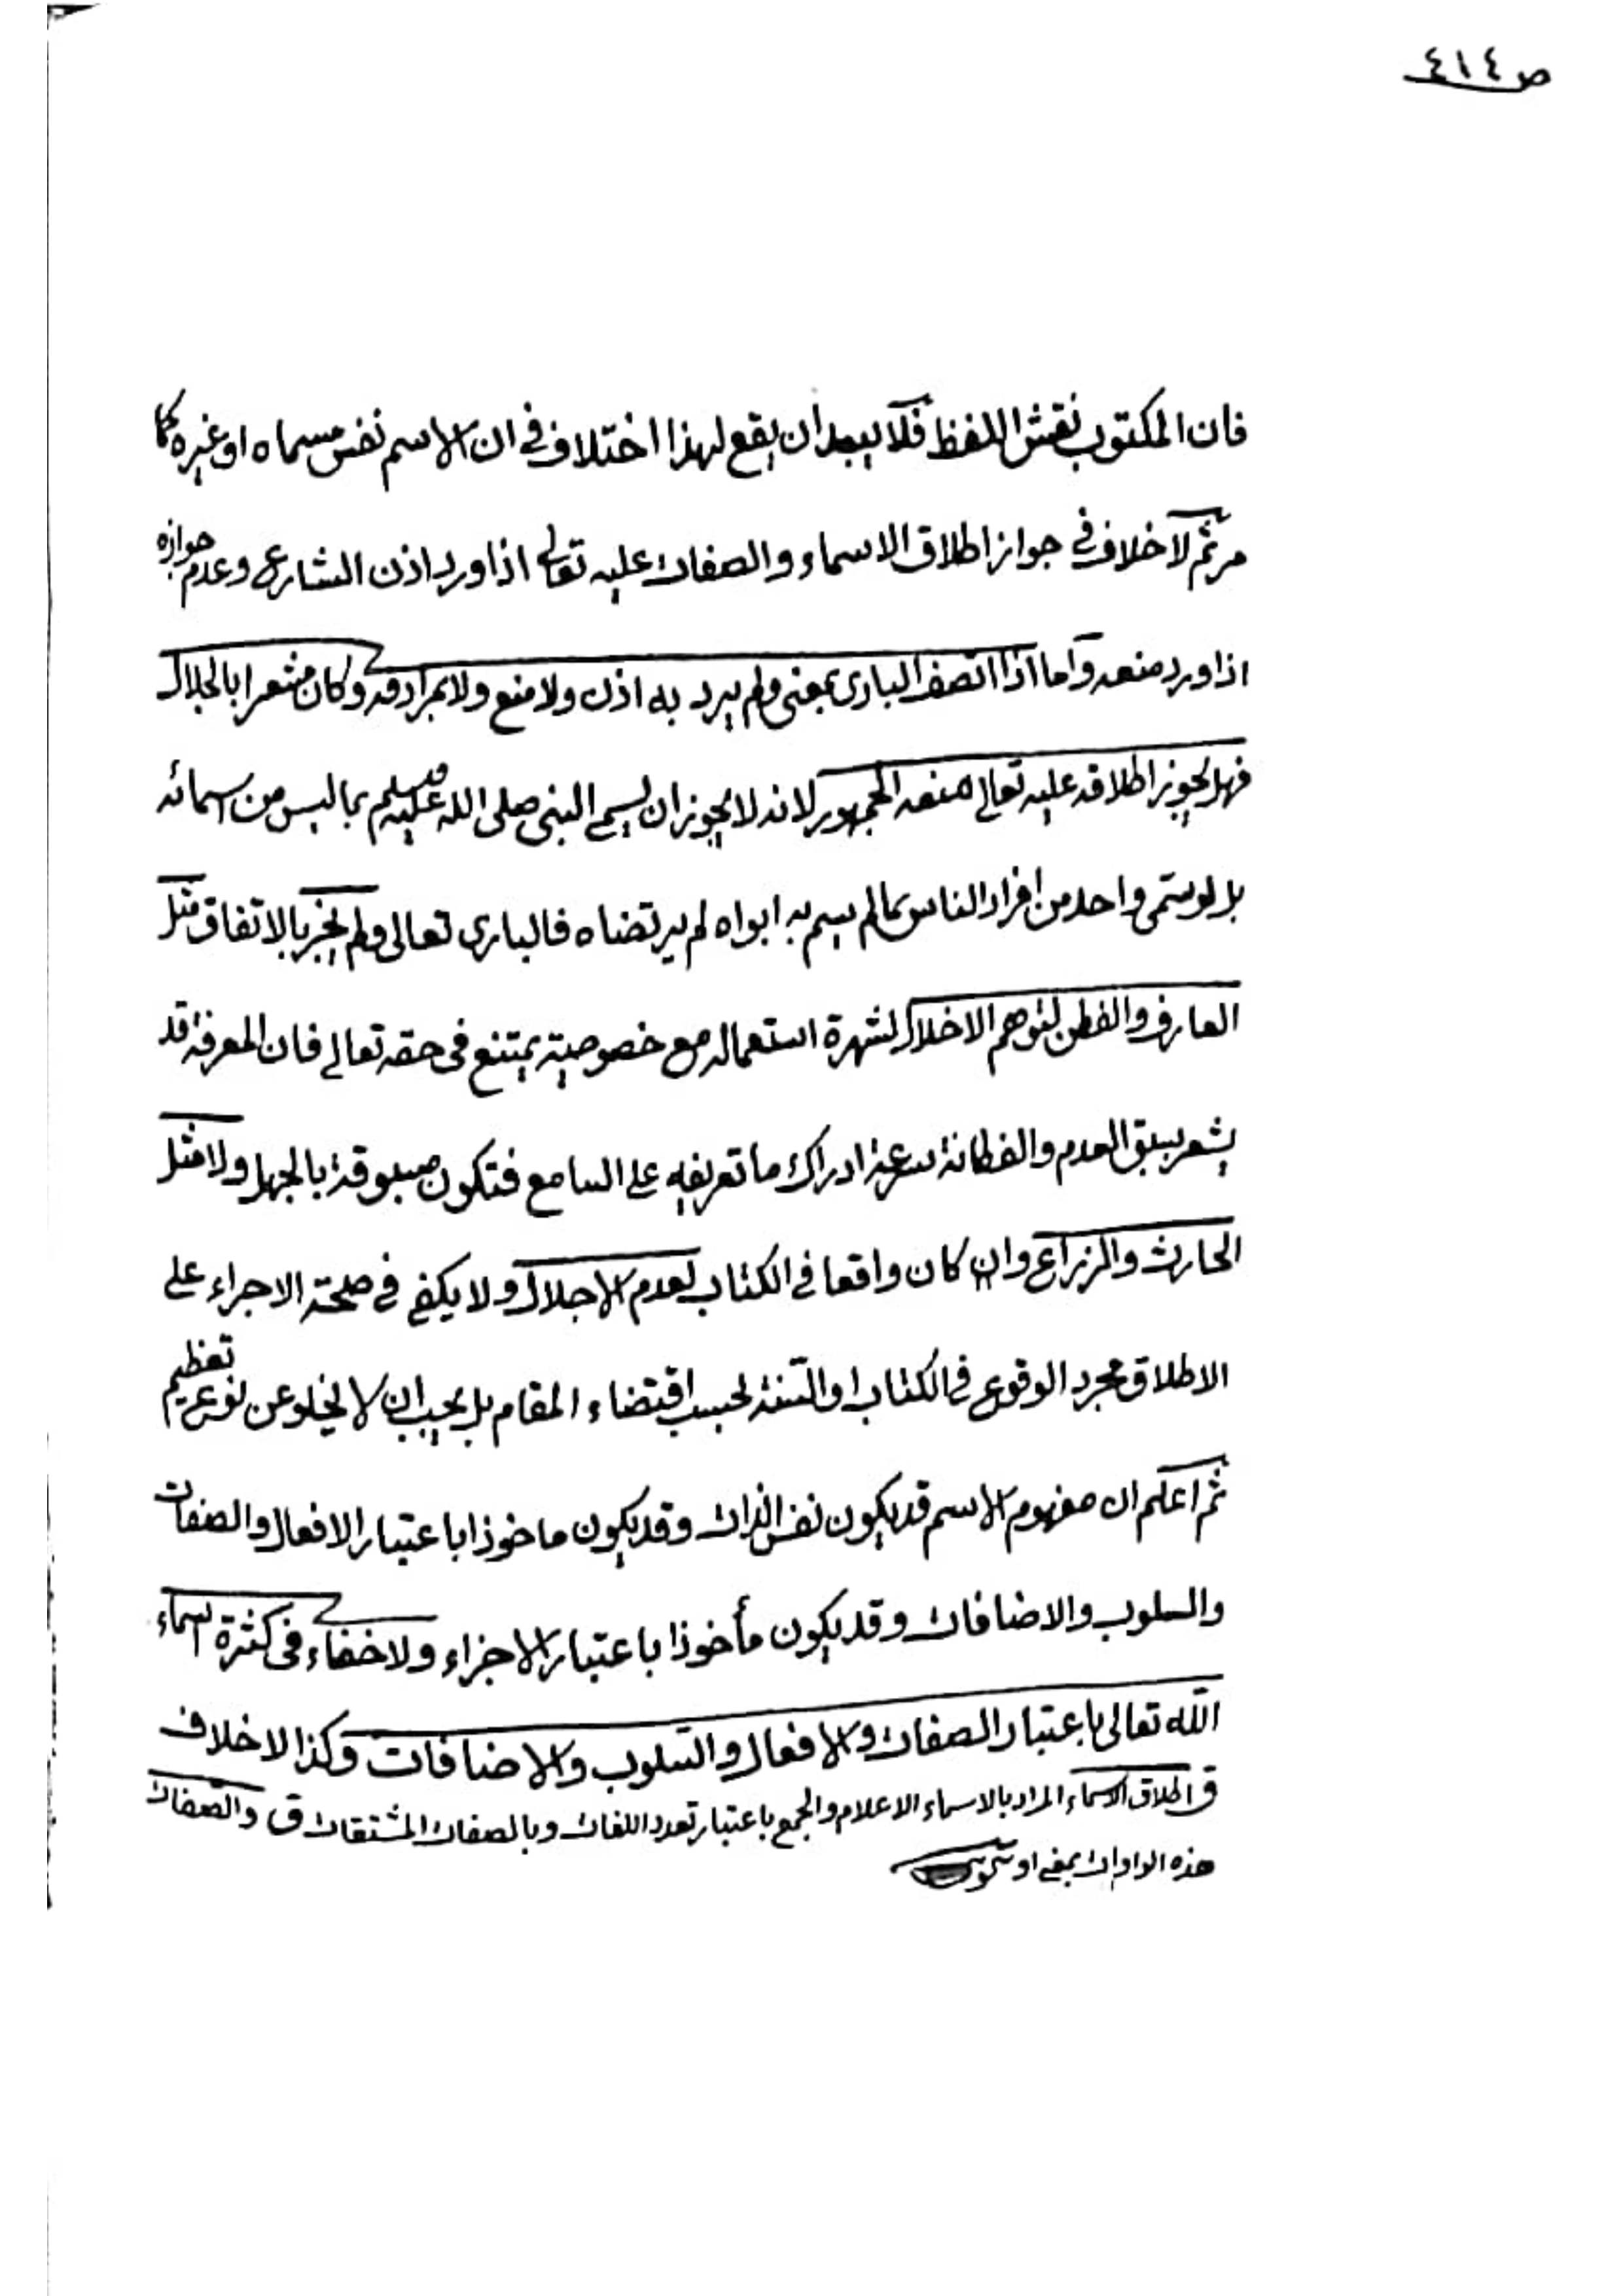 ص ٤١٤
فان المكتوب نقش اللفظ فلا يبعد ان يقع لهذا اختلاف في ان الاسم نفس مسماه او غيره كما
مر ثم لا خلاف في جواز اطلاق الاسماء والصفات عليه تعالى اذا ورد اذن الشارع وعدم جوازه
اذا ورد منعه واما اذا اتصف البارى بمعنى ولم يرد به اذن ولا منع ولا بمرادفه وكان مشعرا بالجلال
فهل يجوز اطلاقه عليه تعالى منعه الجمهور لانه لا يجوز ان يسمى النبى صلى الله عليه وسلم بما ليس من اسمائه
بل لو سمى واحد من افراد الناس بما لم يسم به ابواه لم يرتضاه فالبارى تعالى ولم يجز بالاتفاق مثل
العارف والفطن لتوهم الاخلال لشهرة استعماله مع خصوصية يمتنع فى حقه تعالى فان المعرفة قد
يشعر بسبق العدم والفطانة سرعة ادراك ما تعريفه على السامع فتكون مسبوقة بالجهل ولا مثل
الحارث والزراع وان كان واقعا فى الكتاب لعدم الاجلال ولا يكفى فى صحة الاجراء على
الاطلاق مجرد الوقوع فى الكتاب او السنة بحسب اقتضاء المقام بل يجب ان لا يخلو عن نوع تعظيم
ثم اعلم ان مفهوم الاسم قد يكون نفس الذات وقد يكون ماخوذا باعتبار الافعال والصفات
والسلوب والاضافات وقد يكون مأخوذا باعتبار الاجزاء ولا خفاء فى كثرة اسماء
الله تعالى باعتبار الصفات والافعال والسلوب والاضافات وكذا لا خلاف
ق اطلاق الاسماء المراد بالاسماء الاعلام والجمع باعتبار تعدد اللغات وبالصفات المشتقات ق والصفات
هذه الواوات بمعنى او